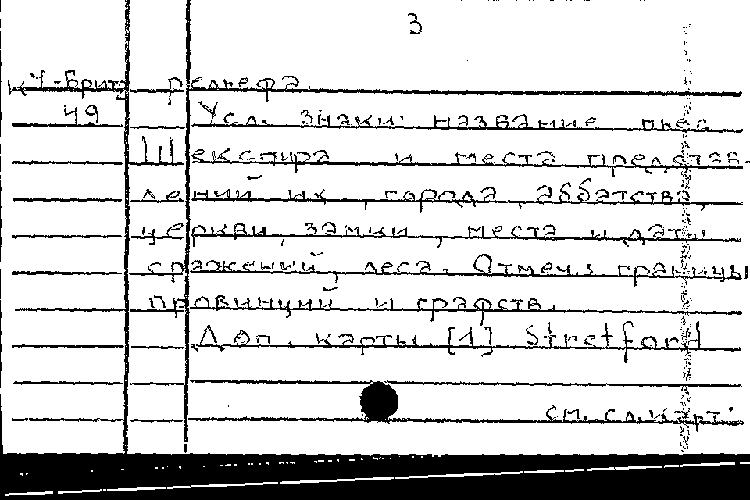 3
К4-Брит рельефа.
49 Усл. знаки: название пьес
Шекспира и места представ-
лений их, города, аббатства,
церкви, замки, места и даты
сражений, леса. Отмеч. границы
провинций и графств.
Доп. карты [1] Stretford
см. сл. карт.